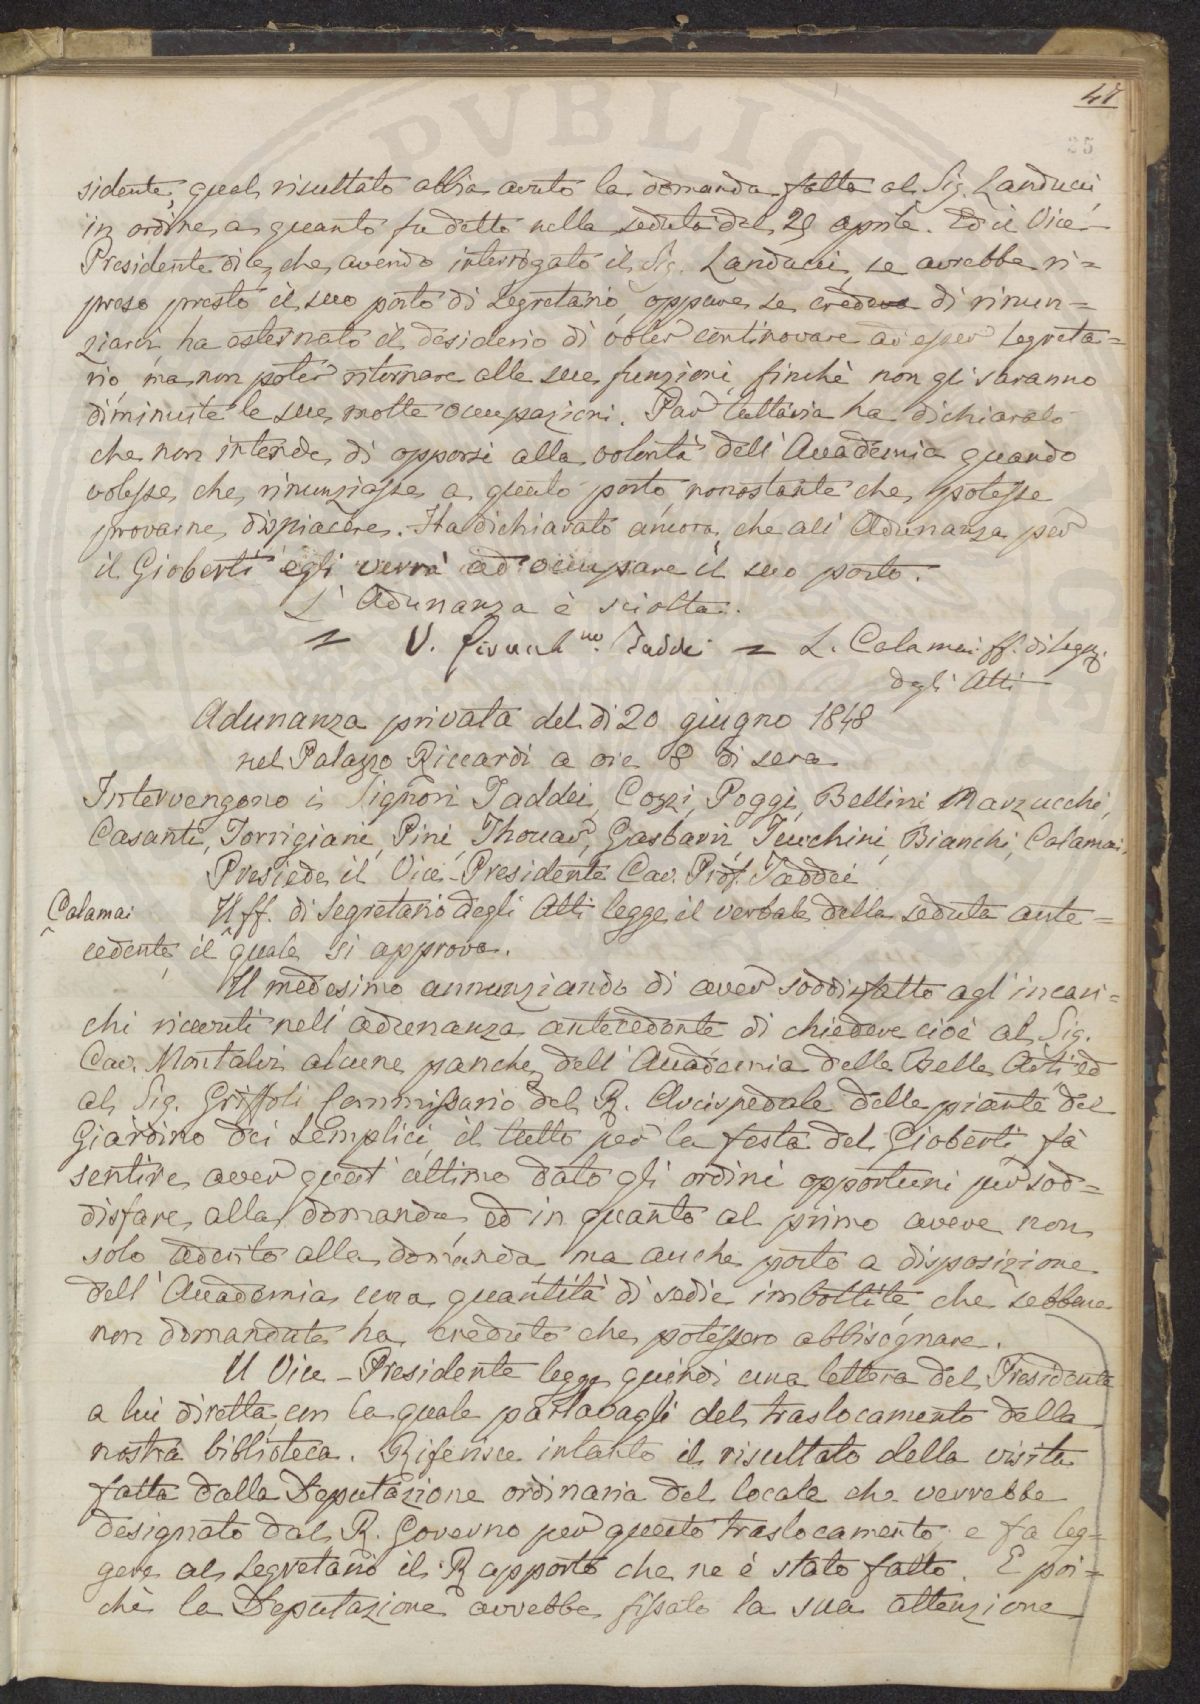 47
35
sidente, qual risultato abbia avuto la domanda fatta al Sig. Landucci
in ordine a quanto fu detto nella seduta del 29 aprile. Ed il Vice-
Presidente dice, che avendo interrogato il Sig. Landucci, se avrebbe ri=
preso presto il suo posto di Segretario, oppure se credeva di rinun=
ziarvi, ha esternato il desiderio di voler continovare ad esser Segreta=
rio, ma non poter ritornare alle sue funzioni, finchè non gli saranno
diminuite le sue molte occupazioni. Pur tuttavia ha dichiarato
che non intende di opporsi alla volontà dell'Accademia quando
volesse che rinunziasse a questo posto, nonostante che potesse
provarne dispiacere. Ha dichiarato ancora, che all'Adunanza per
il Gioberti egli verrà ad occupare il suo posto.
L'Adunanza è sciolta.
= V. Taddei = L. Calamai ff. di Segr.
degli Atti
Adunanza privata del dì 20 giugno 1848
nel Palazzo Riccardi a ore 8 di sera
Intervengono i Signori Taddei, Cozzi, Poggi, Bellini, Marzucchi,
Casanti, Torrigiani, Pini, Thouar, Gasbarri, Bianchi, Calamai.
Presiede il Vice-Presidente Cav. Prof. Taddei
Calamai
Il ff. di Segretario degli Atti legge il verbale della seduta ante=
cedente, il quale si approva.
Il medesimo annunziando di aver soddisfatto agl'incari=
chi ricevuti nell'adunanza antecedente di chiedere cioè al Sig.
Cav. Montalvi alcune panche dell'Accademia delle Belle Arti ed
al Sig. Griffoli Commissario del R. Arcispedale delle piante del
Giardino dei Semplici, il tutto per la festa del Gioberti, fà
sentire aver quest'ultimo dato gli ordini opportuni per sod=
disfare alla domanda, ed in quanto al primo avere non
solo aderito alla domanda, ma anche posto a disposizione
dell'Accademia una quantità di sedie imbottite, che sebbene
non domandate ha creduto che potessero abbisognare.
Il Vice-Presidente legge quindi una lettera del Presidente
a lui diretta, con la quale parlavagli del traslocamento della
nostra biblioteca. Riferisce intanto il risultato della visita
fatta dalla Deputazione ordinaria del locale che verrebbe
designato dal R. Governo per questo traslocamento; e fa leg=
gere al Segretario il Rapporto che ne è stato fatto. E poi=
chè la Deputazione avrebbe fissato la sua attenzione